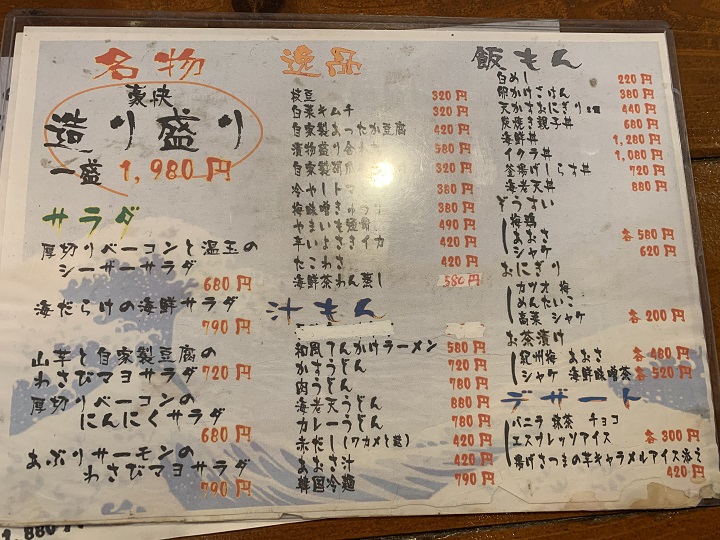 名物
豪快
造り盛り
一盛 1,980円
サラダ
厚切りベーコンと温玉の
シーザーサラダ
680円
海だらけの海鮮サラダ
790円
山芋と自家製豆腐の
わさびマヨサラダ 720円
厚切りベーコンの
にんにくサラダ
680円
あぶりサーモンの
わさびマヨサラダ
790円
逸品
枝豆 320円
白菜キムチ 320円
自家製あったか豆腐 420円
漬物盛り合わせ 580円
自家製 320円
冷やしトマ 380円
梅味噌きゅうり 380円
やまいも 420円
辛いよさきイカ 420円
たこわさ 420円
海鮮茶わん蒸し 580円
汁もん
和風てんかけラーメン 580円
かすうどん 720円
肉うどん 780円
海老天うどん 880円
カレーうどん 780円
赤だし(ワカメと麩) 420円
あおさ汁 420円
韓国冷麺 790円
飯もん
白めし 220円
卵かけごはん 380円
天かすおにぎり 440円
炭焼き親子丼 680円
海鮮丼 1,280円
イクラ丼 1,080円
釜揚げしらす丼 720円
海老天丼 880円
ぞうすい
梅鶏
あおさ 各580円
シャケ 620円
おにぎり
カツオ 梅
めんたいこ
高菜 シャケ 各200円
お茶漬け
紀州梅 あおさ 各480円
シャケ 海鮮味噌茶 各520円
デザート
バニラ 抹茶 チョコ
エスプレッソアイス 各300円
揚げさつまの芋キャラメルアイス添え
420円
1,880円